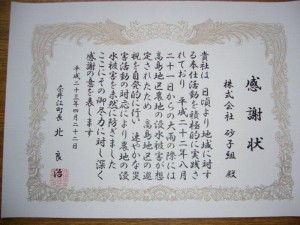 感謝状
株式会社 砂子組 殿
貴社は 日頃より地域に対す
る奉仕活動を積極的に実践さ
れており 平成二十二年八月
二十一日からの大雨の際には
高島地区農地の浸水被害が想
定されたため 高島地区の巡
視を自発的に行い 速やかな災
害活動の対応により農地の浸
水被害を未然に防ぎました
ここにその御尽力に対し深く
感謝の意を表します
平成二十三年四月二十二日
奈井江町長 北 良治